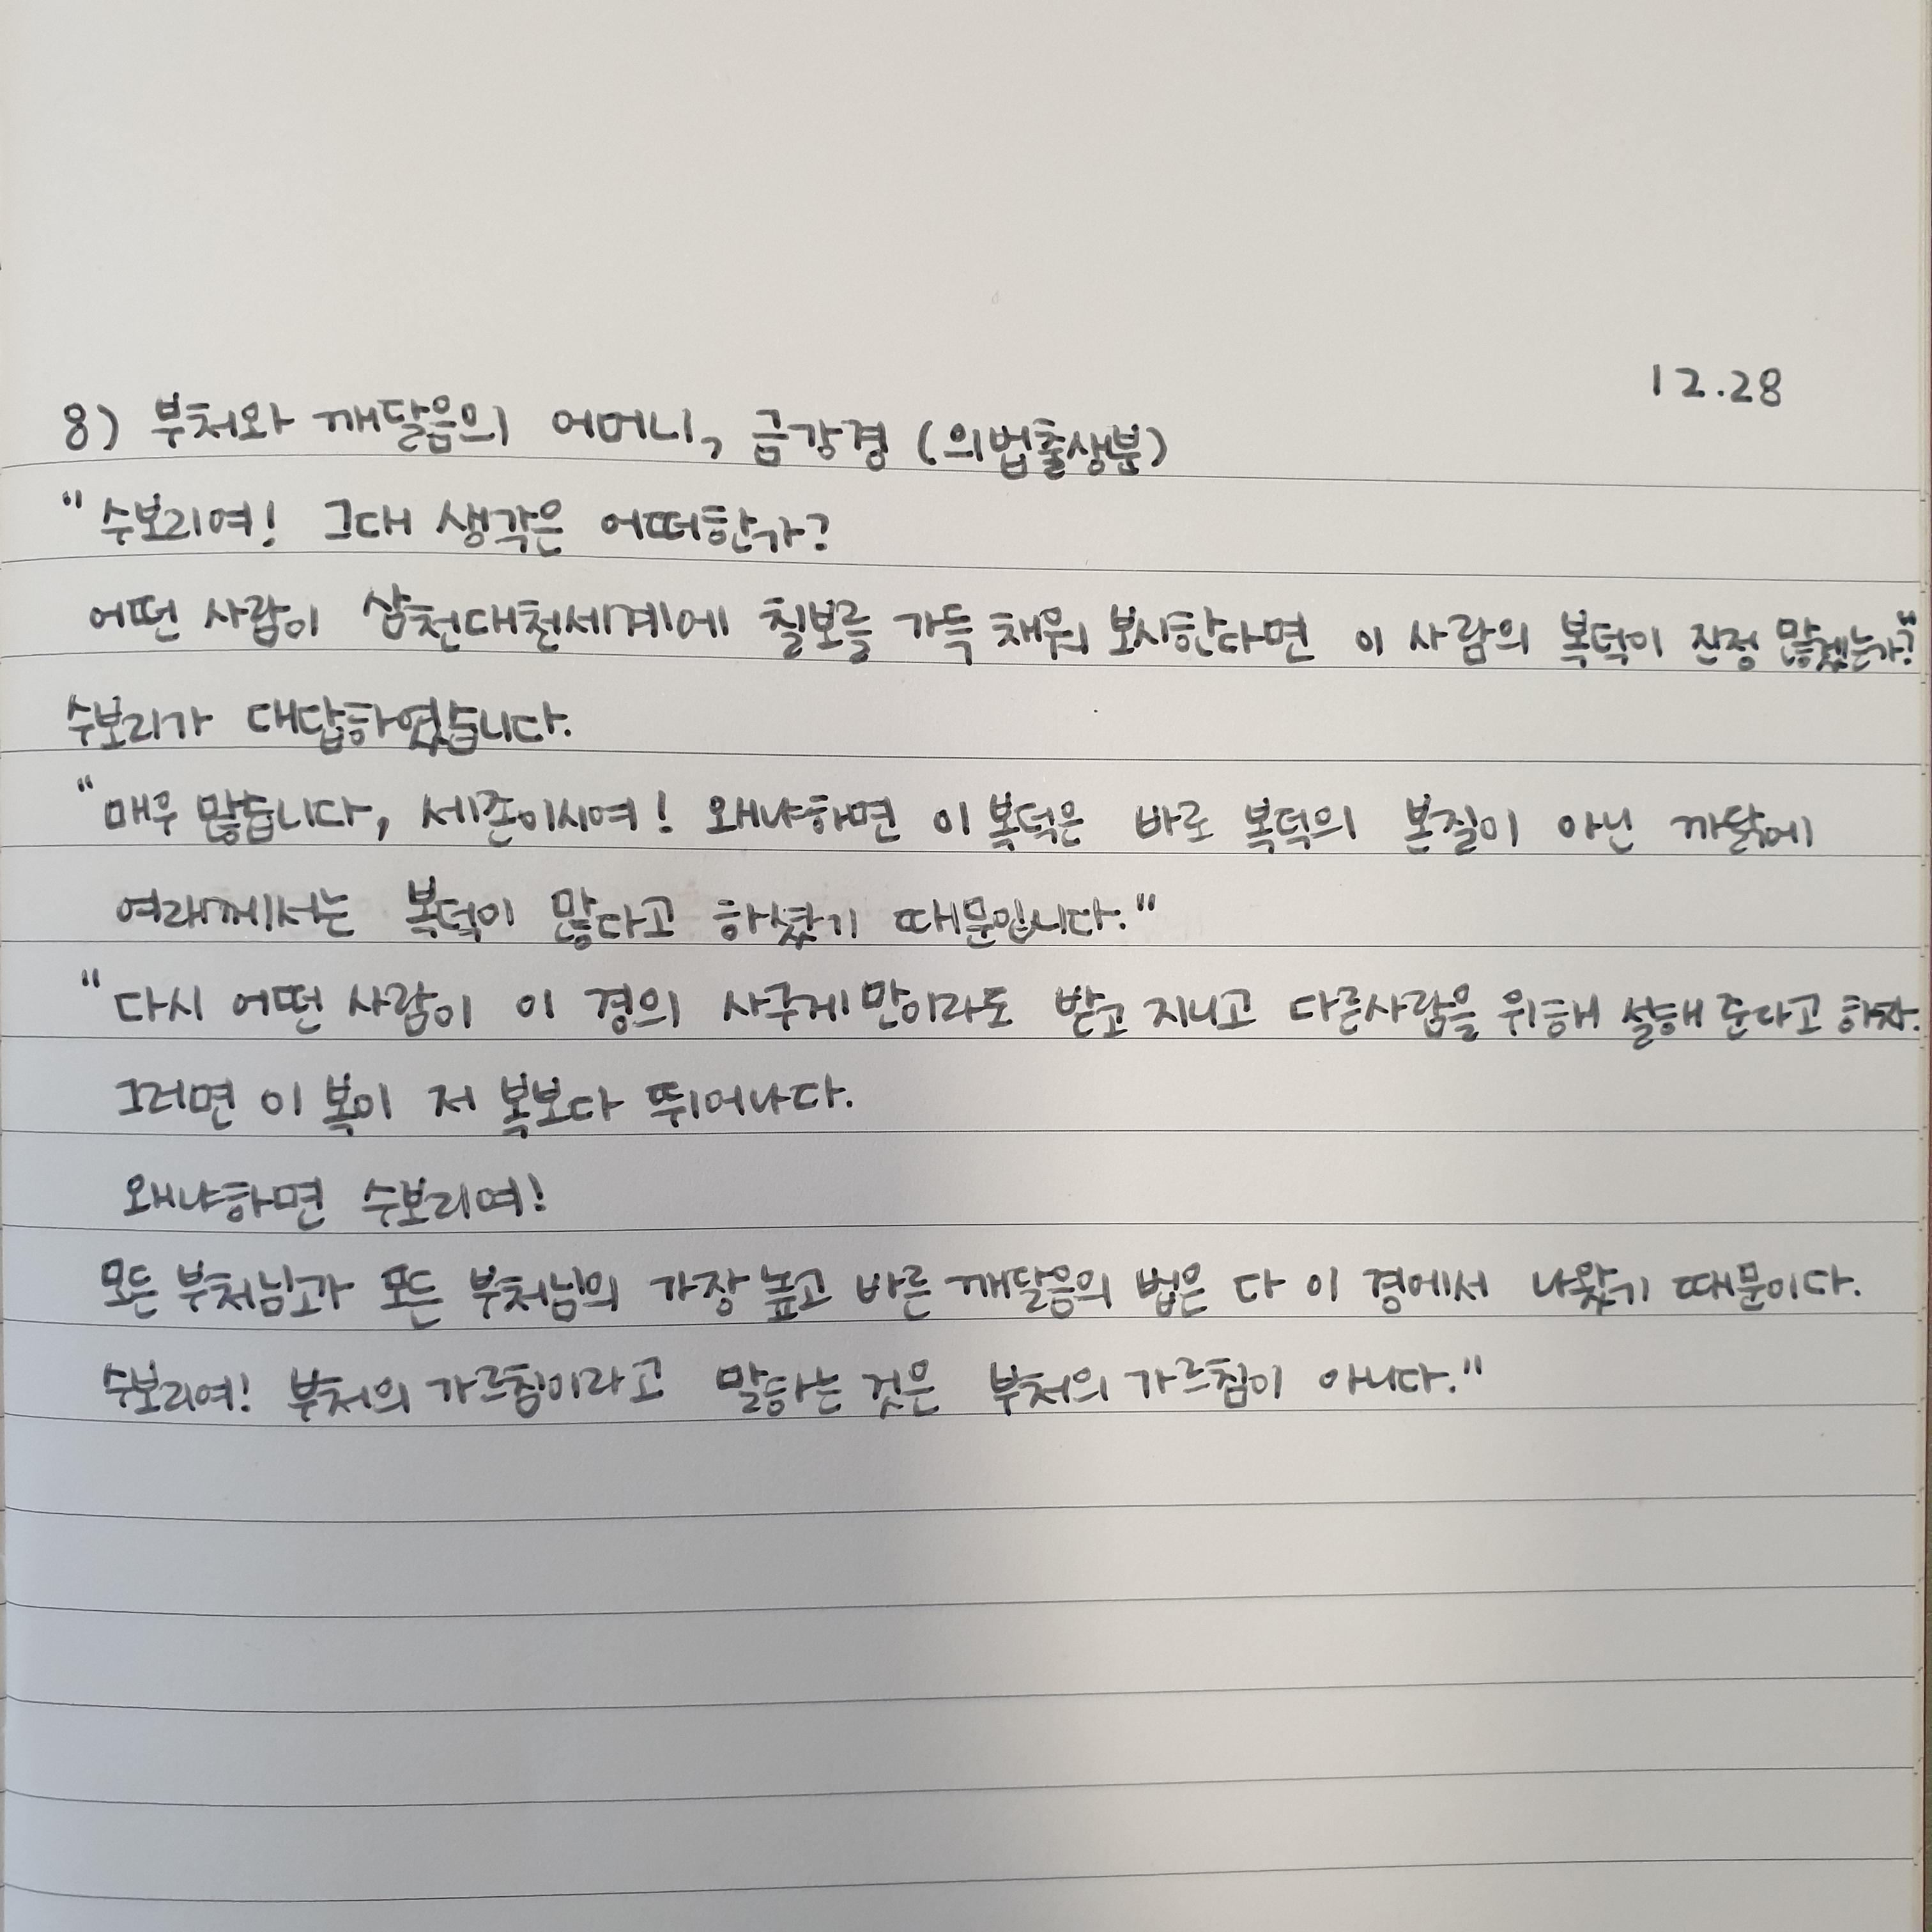 12.28
8) 부처와 깨달음의 어머니, 금강경 (의법출생분)
"수보리여! 그대 생각은 어떠한가?
어떤 사람이 삼천대천세계에 칠보를 가득 채워 보시한다면 이 사람의 복덕이 진정 많겠는가?"
수보리가 대답하였습니다.
"매우 많습니다, 세존이시여! 왜냐하면 이 복덕은 바로 복덕의 본질이 아닌 까닭에
여래께서는 복덕이 많다고 하셨기 때문입니다."
"다시 어떤 사람이 이 경의 사구게만이라도 받고 지니고 다른사람을 위해 설해 준다고 하자.
그러면 이 복이 저 복보다 뛰어나다.
왜냐하면 수보리여!
모든 부처님과 모든 부처님의 가장 높고 바른 깨달음의 법은 다 이 경에서 나왔기 때문이다.
수보리여! 부처의 가르침이라고 말하는 것은 부처의 가르침이 아니다."